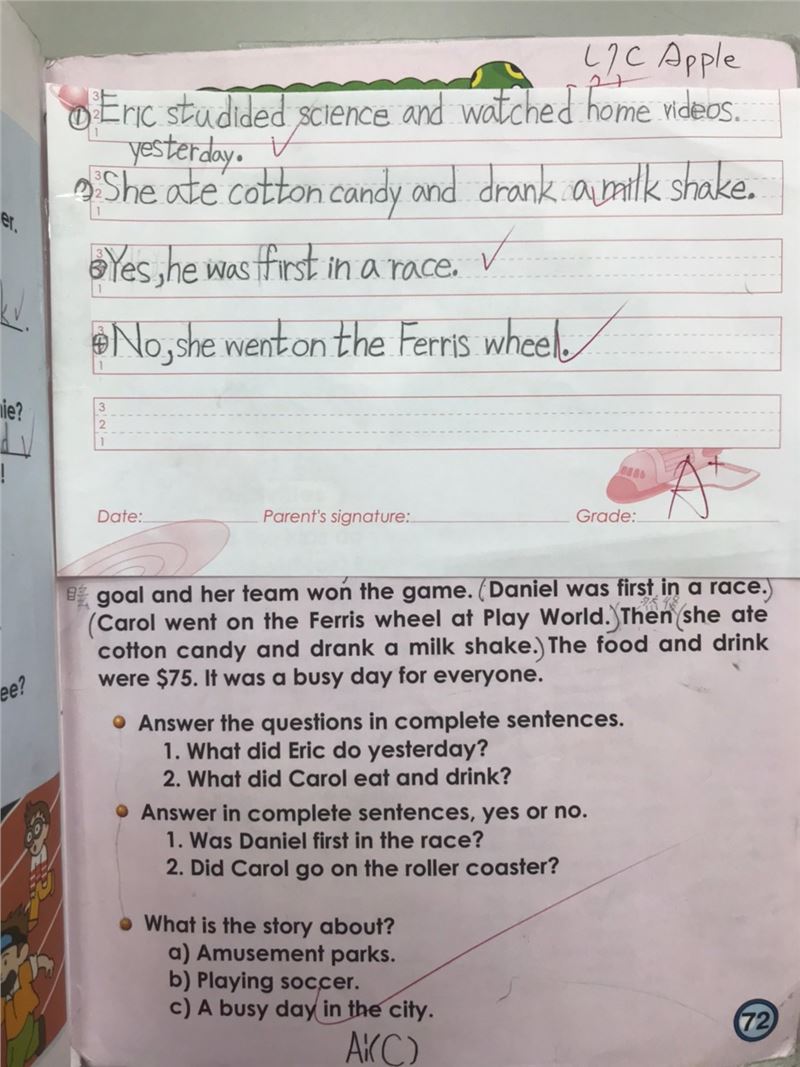 L7C Apple
① Eric studided science and watched home videos.
yesterday.
② She ate cotton candy and drank a milk shake.
③ Yes, he was first in a race.
④ No, she went on the Ferris wheel.
3
2
1
Date: Parent's signature: Grade: A+
goal and her team won the game. (Daniel was first in a race.)
(Carol went on the Ferris wheel at Play World.) Then (she ate
cotton candy and drank a milk shake.) The food and drink
were $75. It was a busy day for everyone.
Answer the questions in complete sentences.
1. What did Eric do yesterday?
2. What did Carol eat and drink?
Answer in complete sentences, yes or no.
1. Was Daniel first in the race?
2. Did Carol go on the roller coaster?
What is the story about?
a) Amusement parks.
b) Playing soccer.
c) A busy day in the city.
A:(C)
72
er.
nie?
!
ee?